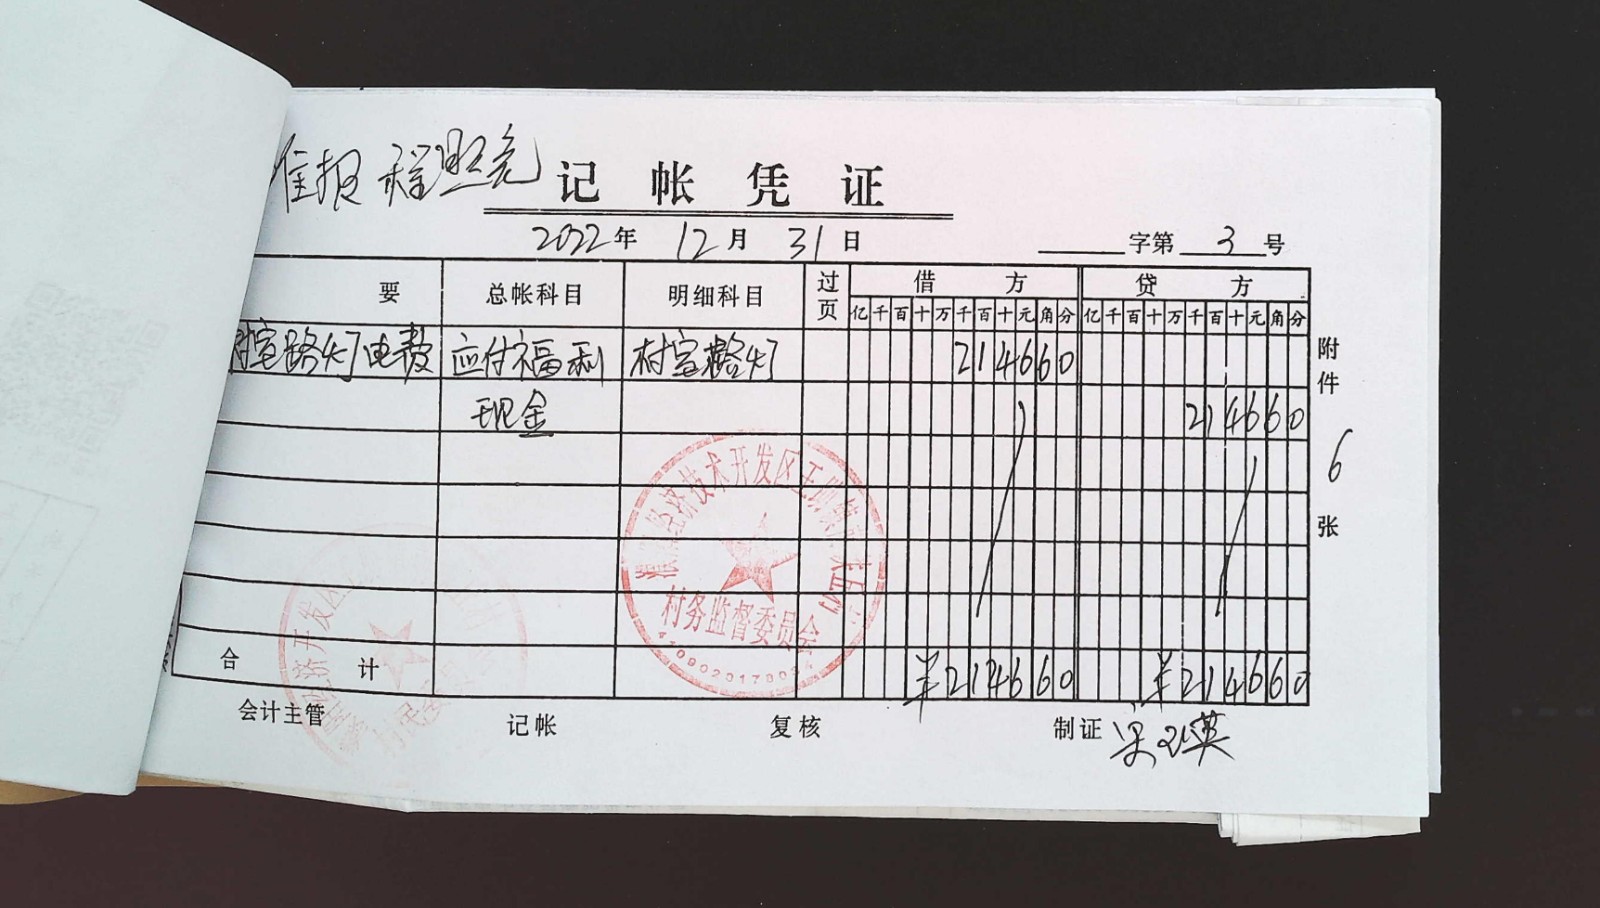 准报 程照亮
记帐凭证
2022年 12月 31日
字第 3 号
要 总帐科目 明细科目 过页 借方 贷方
亿千百十万千百十元角分 亿千百十万千百十元角分
村室路灯电费 应付福利 村室路灯 214660
现金 214660
附件 6 张
经济技术开发区王助镇
村务监督委员会
合计 ¥214660 ¥214660
会计主管 记帐 复核 制证